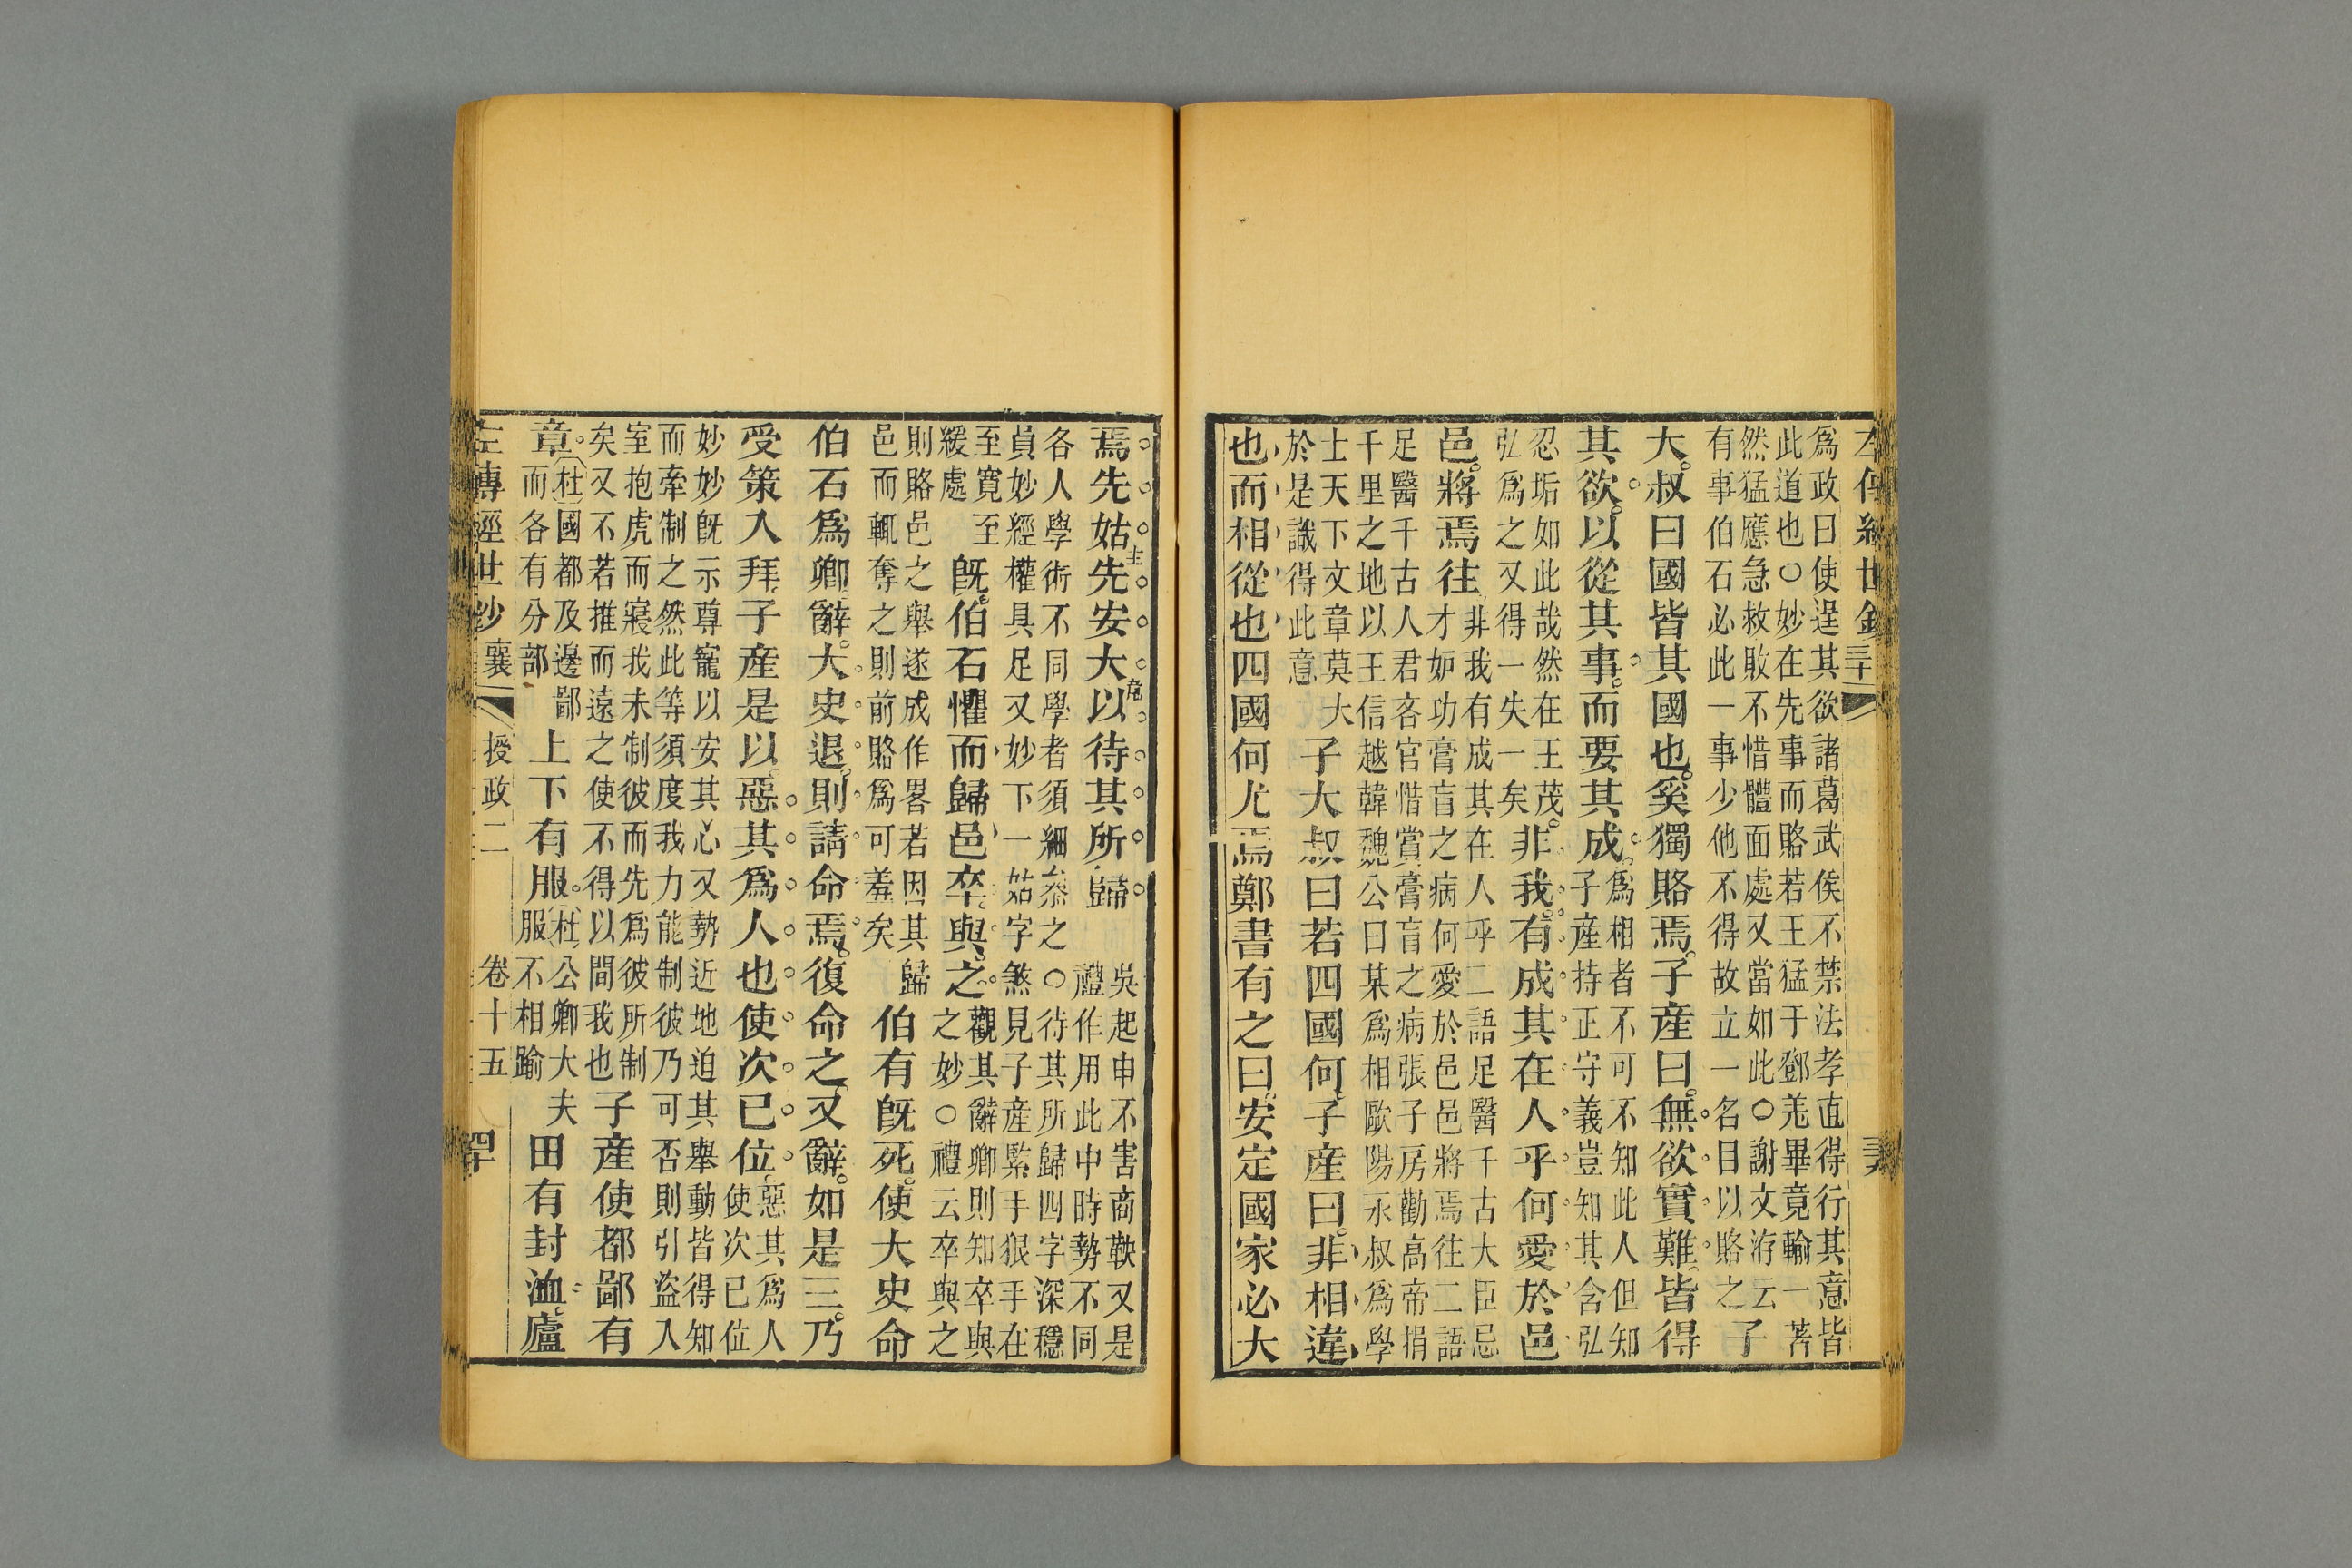 左傳經世鈔
爲政曰使逞其欲諸葛武侯不禁法孝直得行其意皆
此道也○妙在先事而賂若王猛于鄧羌畢竟輸一著
然猛應急救敗不惜體面處又當如此○謝文洊云
有事伯石必此一事少他不得故立一名目以賂之
子
大叔曰國皆其國也奚獨賂焉子產曰無欲實難皆得
其欲以從其事而要其成
爲相者不可不知此人但知
子產持正守義豈知其含弘
忍垢如此哉然在王茂
弘爲之又得一失一矣
非我有成其在人乎何愛於邑
邑將焉往
非我有成其在人乎二語足醫千古大臣忌
才妒功膏肓之病何愛於邑邑將焉往二語
足醫千古人君吝官惜賞膏肓之病張子房勸高帝捐
千里之地以王信越韓魏公曰某爲相歐陽永叔爲學
士天下文章莫大
於是識得此意
子大叔曰若四國何子產曰非相違
也而相從也四國何尤焉鄭書有之曰安定國家必大
焉先姑先安大以待其所歸
主
危
吳起申不害商鞅又是
禮作用此中時勢不同
各人學術不同學者須細叅之○待其所歸四字深穩
員妙經權具足又妙下一姑字煞見子產緊手狠手在
至寬至
緩處
既伯石懼而歸邑卒與之
觀其辭卿則知卒與
之妙○禮云卒與之
則賂邑之舉遂成作畧若因其歸
邑而輒奪之則前賂爲可羞矣
伯有既死使大史命
伯石爲卿辭大史退則請命焉復命之又辭如是三乃
受策入拜子產是以惡其爲人也使次已位
惡其爲人
使次已位
妙妙既示尊寵以安其心又勢近地迫其舉動皆得知
而牽制之然此等須度我力能制彼乃可否則引盜入
室抱虎而寢我未制彼而先爲彼所制
矣又不若推而遠之使不得以間我也
子產使都鄙有
章
杜國都及邊鄙
而各有分部
上下有服
杜公卿大夫
服不相踰
田有封洫廬
左傳經世鈔 襄 授政二 卷十五 四十